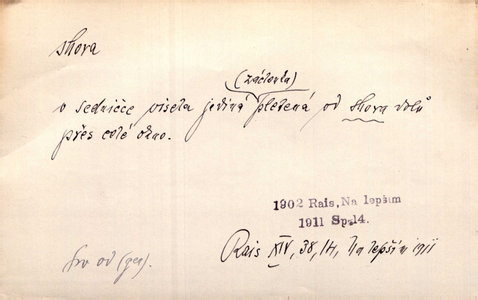 shora
(záclonka)
v sedničce visela jediná pletená od shora dolů
přes celé okno.
1902 Rais, Na lepším
1911 Sp. 14.
Rais XIV, 38, 14, Na lepším 1911
od (gen).